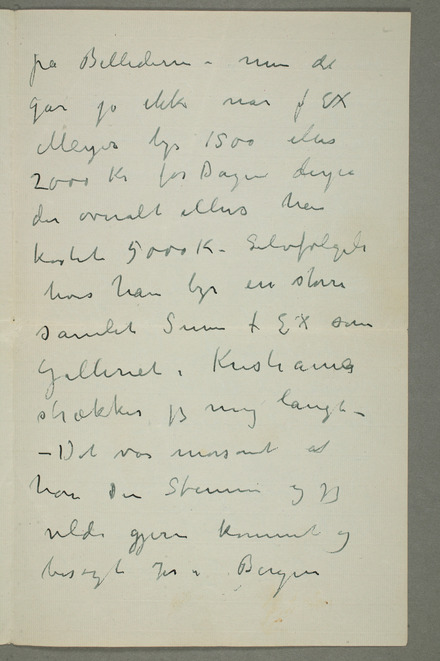 på Billederne – men det
går jo ikke når f EX
Meyer byr 1500 eller
2000 Kr for Dagen
der overalt ellers har
kostet 5000 K – Selvfølgeli
hvis han byr en større
samlet Sum f EX som
Galleriet i Kristiania
strækker jeg mig langt –
– Det var morsomt at
høre Din Stemme og jeg
vilde gjerne kommet og
besøgt Jer i Bergen